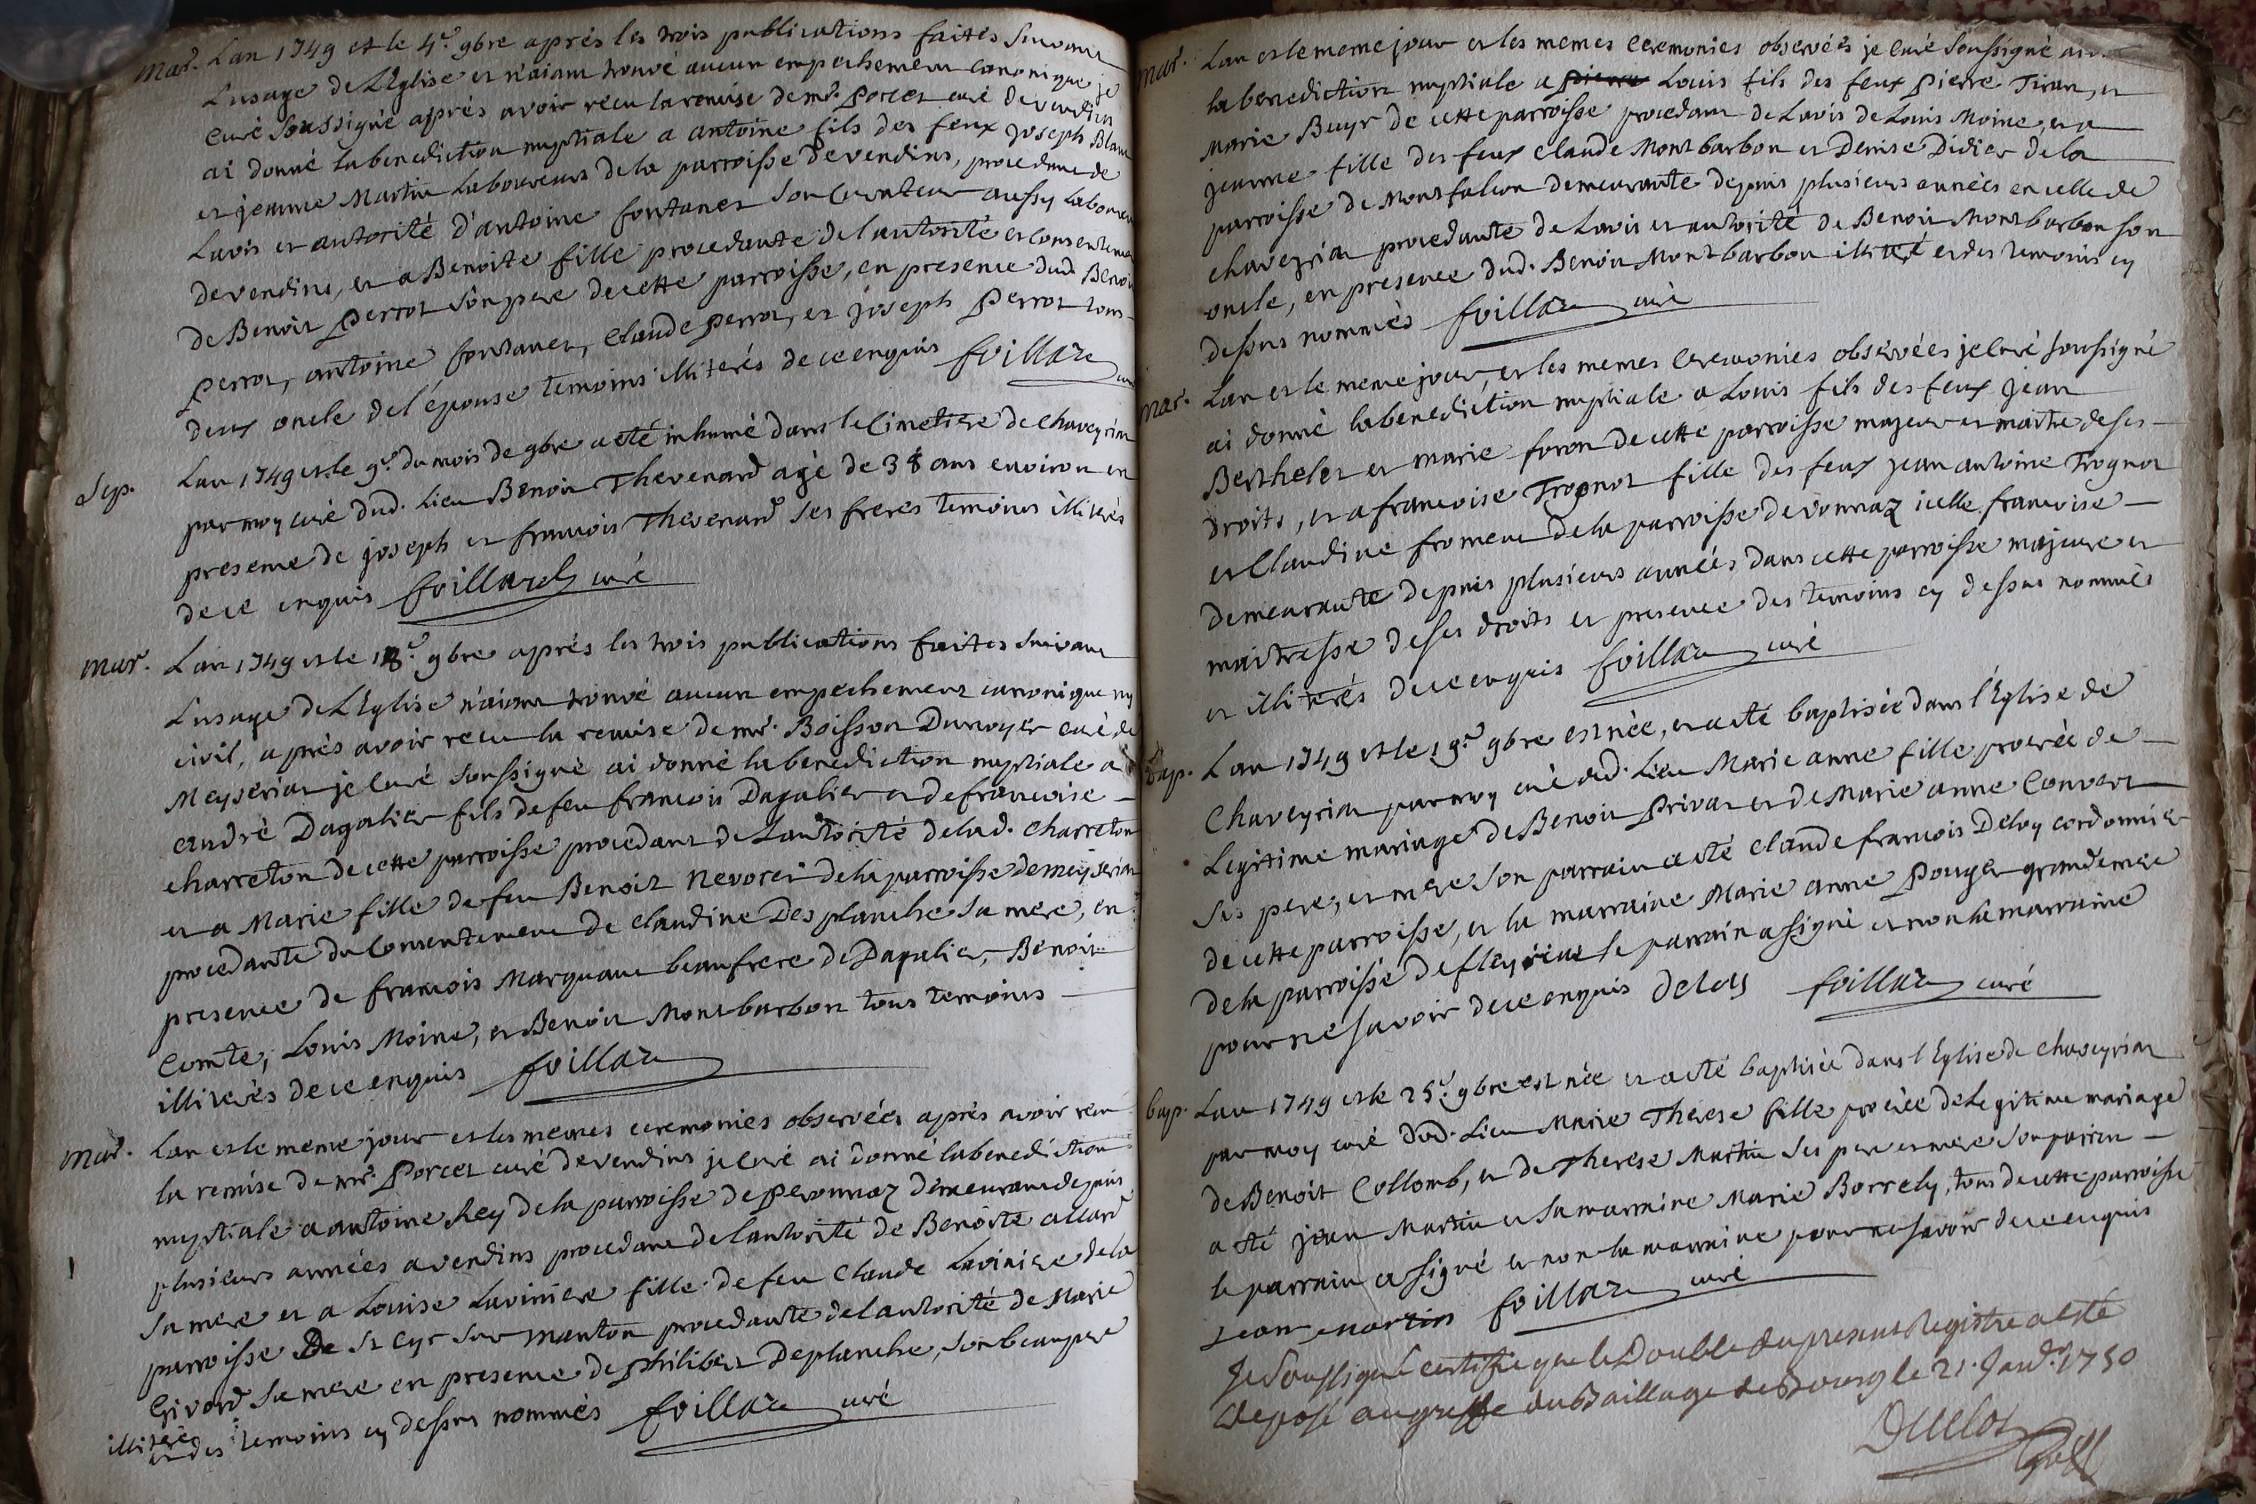 Mar. Lan 1749 et le 4.e 9bre aprés les trois publications faites Suivant
Lusage de L'Eglise et n'aiant trouvé aucun empechement canonique je
curé Soussigné aprés avoir recu la remise de mr. Porcet curé de vendins
ai donné la benediction nuptiale a antoine fils des feux joseph Blanc
et jeanne Martin Laboureurs de la parroisse de vendins, procedant de
Lavis et autorité d'antoine fontanet Son Curateur aussy laboureur
de vendins, et a Benoite fille procedante de l'autorité et consentement
de Benoit Perrot Son pere de cette parroisse, en presence dud. Benoit
Perrot, antoine fontanet, Claude Perrot, et joseph Perrot tous
deux oncle de l'épouse temoins illiterés de ce enquis foillard curé
Sep. Lan 1749 et le 9.e du mois de 9bre a eté inhumé dans le Cimetiere de Chaveyriat
par moy curé dud. Lieu Benoit Thevenard agé de 38 ans environ en
presence de joseph et francois Thevenard Ses freres temoins illiterés
de ce enquis foillard curé
Mar. Lan 1749 et le 18.e 9bre aprés les trois publications faites Suivant
Lusage de L'Eglise n'aiant trouvé aucun empechement canonique ny
civil, aprés avoir recu la remise de mr. Boisson Dunoyer curé de
Meyseriat je Curé Soussigné ai donné la benediction nuptiale a
andré Dagalier fils de feu francois Dagalier et de francoise
charreton de cette parroisse procedant de L'autorité de lad. charreton
et a Marie fille de feu Benoit Nevoret de la parroisse de meyseriat
procedante du Consentement de Claudine Desplanche Sa mere, en
presence de francois Marquant beaufrere de Dagalier, Benoit
Comte, Louis Moine, et Benoit Montbarbon tous temoins
illiterés de ce enquis foillard
Mar. Lan et le meme jour et les memes ceremonies observées aprés avoir recu
la remise de mr. Porcet curé de vendins je Curé ai donné la benediction
nuptiale a antoine Rey de la parroisse de Peronnaz demeurant depuis
plusieurs années a vendins procedant de lautorité de Benoite allard
Sa mere et a Louise Laviniere fille de feu Claude Laviniere de la
parroisse De St Cyr Sur manton procedante de lautorité de Marie
Givord Sa mere en presence de philibert Deplanche, Son beaupere
illiteré et des temoins cy dessus nommés foillard curé
Mar. Lan et le meme jour et les memes ceremonies observées je Curé Soussigné ai
la benediction nuptiale a Louis fils des feux Pierre Tiran, et
Marie Buyr de cette parroisse procedant de Lavis de Louis Moine, et a
jeanne fille des feux Claude Montbarbon et Denise Didier de la
parroisse de Montfalcon demeurante depuis plusieurs années en celle de
chaveyriat procedante de Lavis et autorité de Benoit Montbarbon Son
oncle, en presence dud. Benoit Montbarbon illiteré et des temoins cy
dessus nommés foillard curé
Mar. Lan et le meme jour, et les memes ceremonies observées je Curé Soussigné
ai donné la benediction nuptiale a Louis fils des feux jean
Berthelet et marie foron de cette parroisse majeur et maitre de ses
droits, et a francoise Trognot fille des feux jean antoine Trognot
et Claudine froment de la parroisse de vonnaz icelle francoise
demeurante depuis plusieurs années dans cette parroisse majeure et
maitresse de ses droits et presence des temoins cy dessus nommés
et illiterés de ce enquis foillard curé
Bap. Lan 1749 et le 19.e 9bre est née, et a eté baptisée dans l'Eglise de
Chaveyriat par moy curé dud. Lieu Marie anne fille procréée de
Legitime mariage de Benoit Privat et de Marie anne Convert
Ses pere, et mere Son parrain a eté Claude francois Deloy cordonnier
de cette parroisse, et la marraine Marie anne Pouger grandemere
de la parroisse de fleyriat le parrain a Signé et non la marraine
pour ne Savoir de ce enquis deloy foillard curé
bap. Lan 1749 et le 25.e 9bre est née et a eté baptisée dans l'Eglise de Chaveyriat
par moy curé dud. Lieu Marie Therese fille procréée de Legitime mariage
de Benoit Collomb, et de Therese Martin Ses pere et mere Son parrein
a eté jean Martin et Sa marraine Marie Borrely, tous de cette parroisse
le parrain a Signé et non la marraine pour ne Savoir de ce enquis
jean martin foillard curé
Je Soussigné certiffie que le Double du present Registre a esté
deposé au greffe du Bailliage de Bourg le 21. Janv.r 1750
Duclos